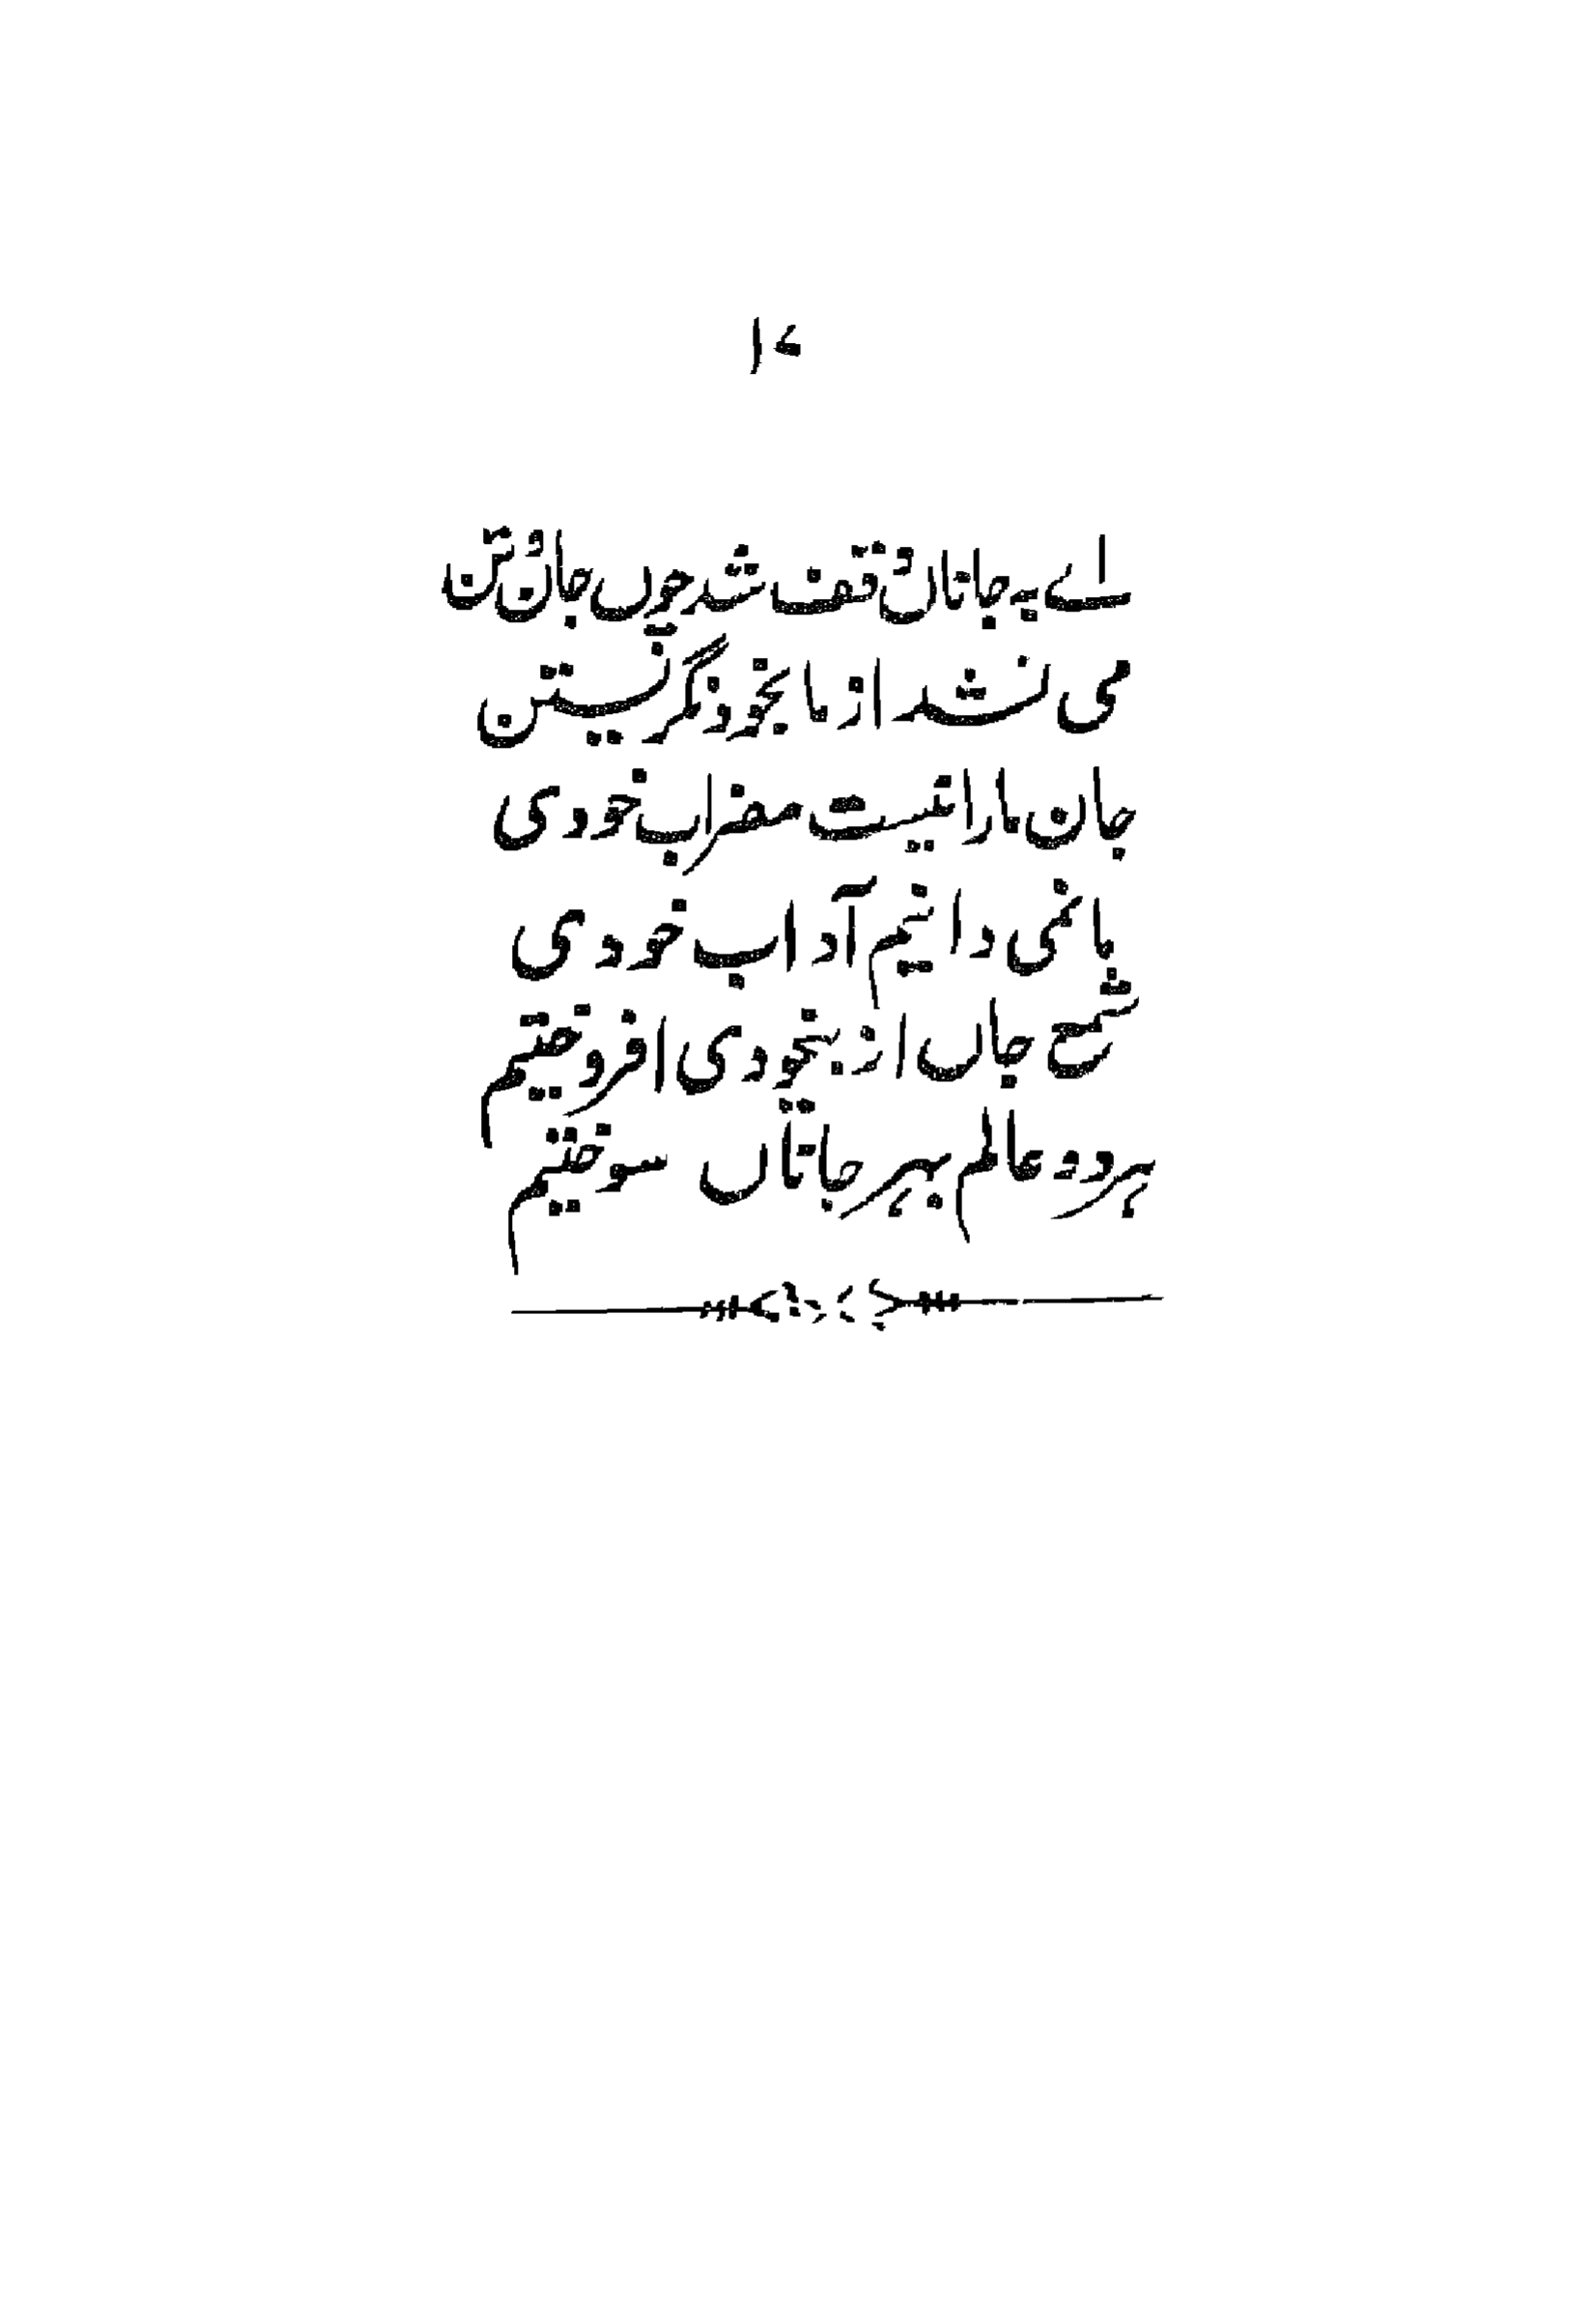 ۱۷
اے بہ جاناں وقف شد چوں جان و تن
می نشد از ما بخود نگریستن
جان ما را نیست مضراب خودی
ما نمی دانیم آداب خودی
شمع جاں از بیخودی افروختیم
ہر دو عالم بہر جاناں سوختیم